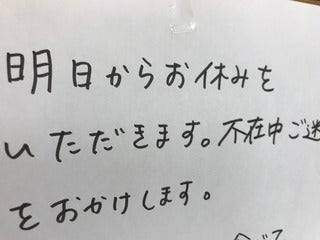 明日からお休みを
いただきます。不在中ご迷
をおかけします。